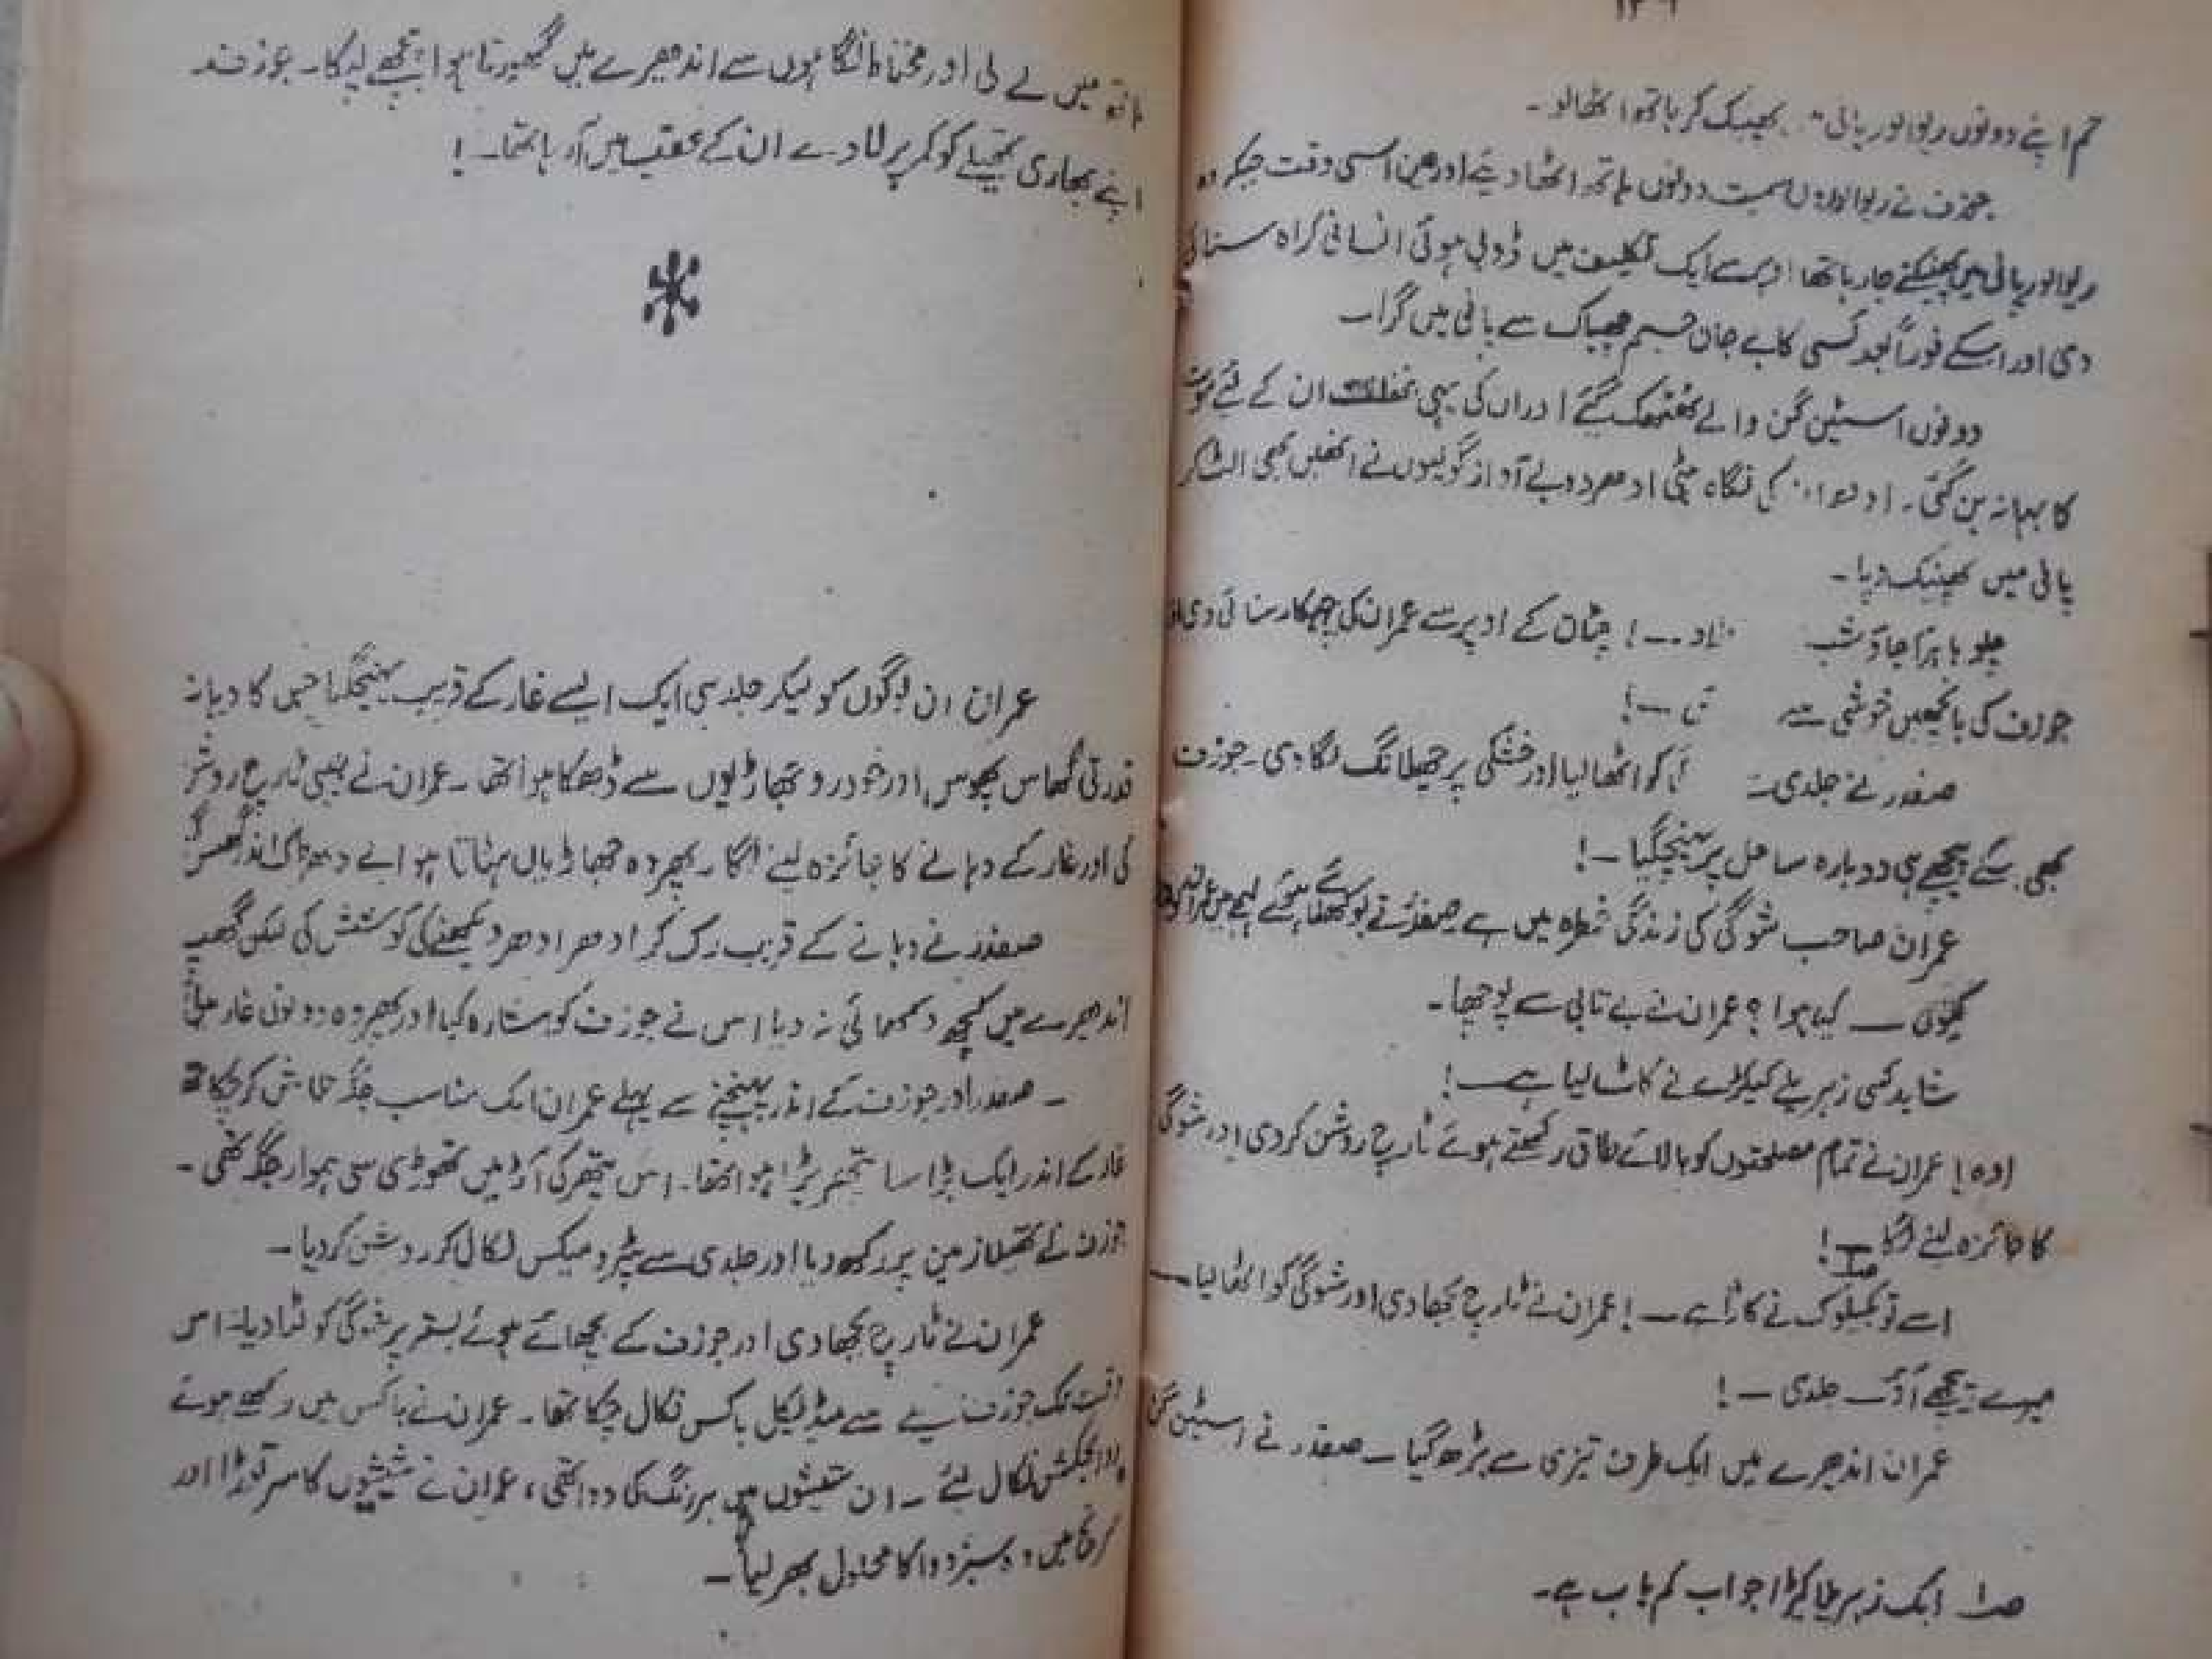 تم اپنے دونوں ریوالور پانی میں پھینک کر ہاتھ اٹھالو۔
جوزف نے ریوالوروں سمیت دونوں ہاتھ اٹھا دیئے اور عین اسی وقت جبکہ وہ
ریوالور پانی میں پھینکنے جا رہا تھا اوپر سے ایک تکلیف میں ڈوبی ہوئی انسانی کراہ سنائی
دی اور اسکے فوراً بعد کسی کا بے جان جسم چھپاک سے پانی میں گرا۔
دونوں اسٹین گن والے ٹھٹھک گئے اور ان کی یہی غفلت ان کے لئے موت
کا بہانہ بن گئی۔ ادھر ان کی نگاہ ہٹی ادھر دو بے آواز گولیوں نے انھیں بھی الٹ کر
پانی میں پھینک دیا۔
چلو باہر آجاؤ شب ! چٹان کے اوپر سے عمران کی چہکار سنائی دی اور
جوزف کی باچھیں خوشی سے !
صفدر نے جلدی سے کو اٹھا لیا اور خشکی پر چھلانگ لگا دی۔ جوزف
بھی اسکے پیچھے ہی دوبارہ ساحل پر پہنچ گیا۔!
عمران صاحب شوگی کی زندگی خطرہ میں ہے صفدر نے بوکھلائے ہوئے لہجے میں
کیوں — کیا ہوا؟ عمران نے بے تابی سے پوچھا۔
شاید کسی زہریلے کیکڑے نے کاٹ لیا ہے—!
اوہ! عمران نے تمام مصلحتوں کو بالائے طاق رکھتے ہوئے ٹارچ روشن کر دی اور شوگی
کا جائزہ لینے لگا—!
اسے تو نے کاٹا ہے—! عمران نے ٹارچ بجھا دی اور شوگی کو اٹھا لیا—
میرے پیچھے آؤ جلدی—!
عمران اندھیرے میں ایک طرف تیزی سے بڑھ گیا۔ صفدر نے اسٹین گن
ایک زہریلا کیڑا جو اب کم یاب ہے۔
ہاتھ میں لے لی اور محتاط نگاہوں سے اندھیرے میں گھورتا ہوا پیچھے لپکا۔ جوزف
اپنے بھاری تھیلے کو کمر پر لادے ان کے عقب میں آرہا تھا۔!
عمران ان لوگوں کو لیکر جلد ہی ایک ایسے غار کے قریب پہنچ گیا جس کا دہانہ
قدرتی گھاس پھوس اور خودرو جھاڑیوں سے ڈھکا ہوا تھا۔ عمران نے ٹارچ روشن
کی اور غار کے دہانے کا جائزہ لینے لگا۔ پھر وہ جھاڑیاں ہٹاتا ہوا بے دھڑک اندر گھس گیا
صفدر نے دہانے کے قریب رک کر ادھر ادھر دیکھنے کی کوشش کی لیکن گھپ
اندھیرے میں کچھ دکھائی نہ دیا اس نے جوزف کو اشارہ کیا اور پھر وہ دونوں غار میں
۔ صفدر اور جوزف کے اندر پہنچنے سے پہلے عمران ایک مناسب جگہ تلاش کر چکا تھا
غار کے اندر ایک بڑا سا پتھر پڑا ہوا تھا۔ اس پتھر کی آڑ میں تھوڑی سی ہموار جگہ تھی۔
جوزف نے تھیلا زمین پر رکھ دیا اور جلدی سے پیٹرومیکس نکال کر روشن کر دیا۔
عمران نے ٹارچ بجھا دی اور جوزف کے بچھائے ہوئے بستر پر شوگی کو لٹا دیا۔ اس
وقت تک جوزف سے میڈیکل باکس نکال چکا تھا۔ عمران نے باکس میں رکھے ہوئے
دو انجکشن نکال لئے۔ ان شیشیوں میں سبز رنگ کی دوا تھی، عمران نے شیشیوں کا سر توڑا اور
سرنج میں وہ سبز دوا کا محلول بھر لیا۔